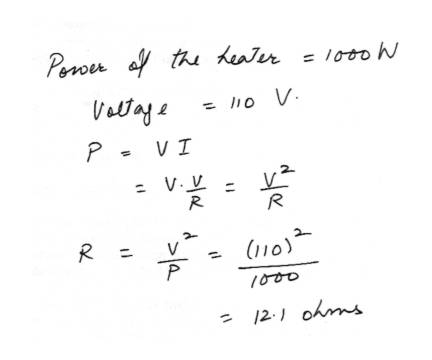 Power of the heater = 1000 W
Voltage = 110 V.
P = V I
= V. V/R = V²/R
R = V²/P = (110)²/1000
= 12.1 ohms